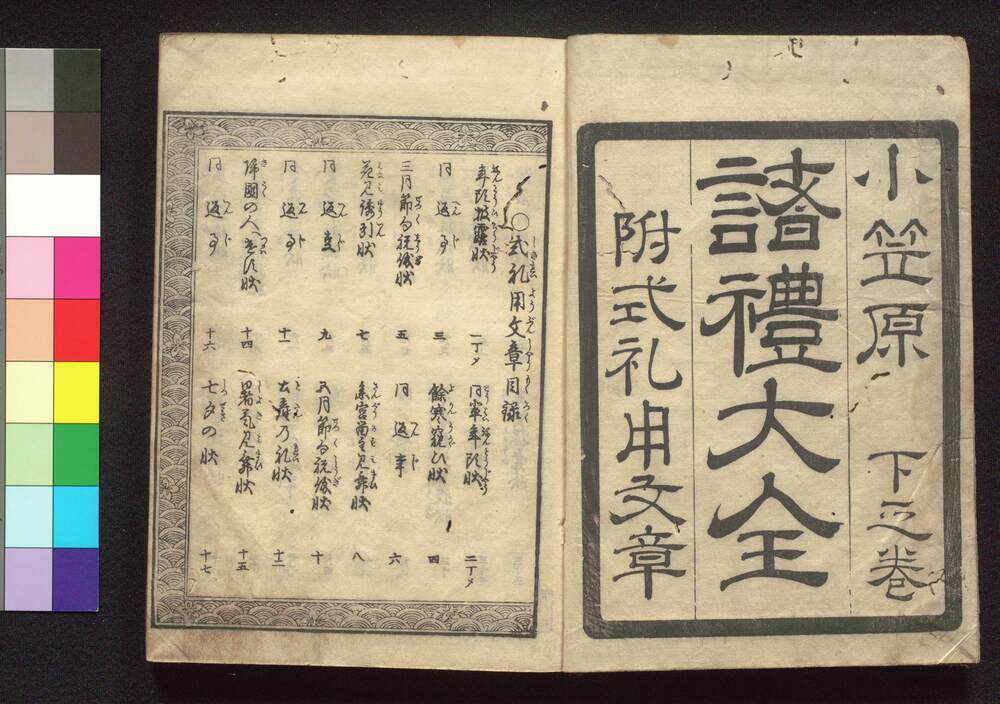 小笠原 下之巻
諸禮大全
附式礼用文章
〇式礼用文章目録
年頭披露状 一丁メ
同輩年頭状 二丁メ
同返事 三
餘寒窺ひ状 四
三月節句祝儀状 五
同返事 六
花見誘引状 七
同返事 九
五月節句祝儀状 十
同返事 十一
出産の礼状 十二
帰國の人へ遣す状 十四
暑気見舞状 十五
同返事 十六
七夕の状 十七